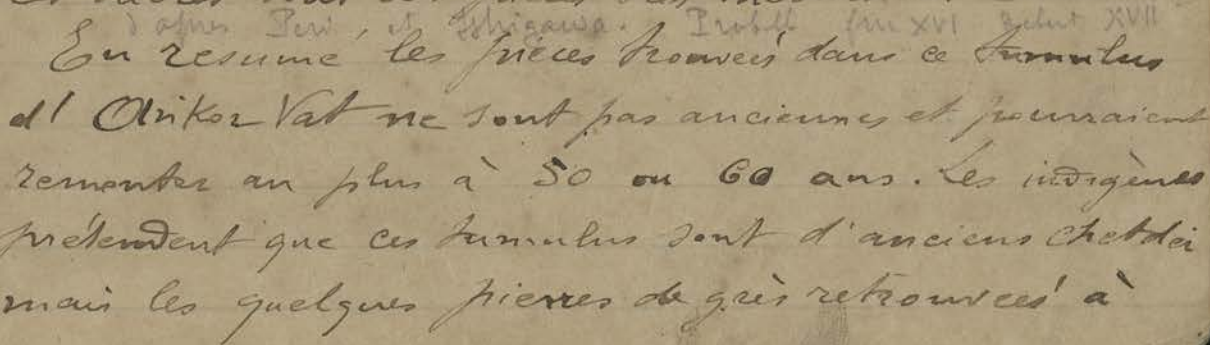 d'après Peri et Ishigawa. Probabt fin XVI début XVII
En résumé les pièces trouvées dans ce tumulus
d'Angkor Vat ne sont pas anciennes et pourraient
remonter au plus à 50 ou 60 ans. Les indigènes
prétendent que ces tumulus sont d'anciens chetdei
mais les quelques pierres de grès retrouvées à